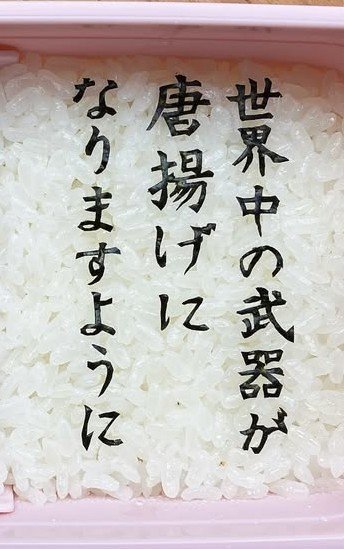 世界中の武器が
唐揚げに
なりますように